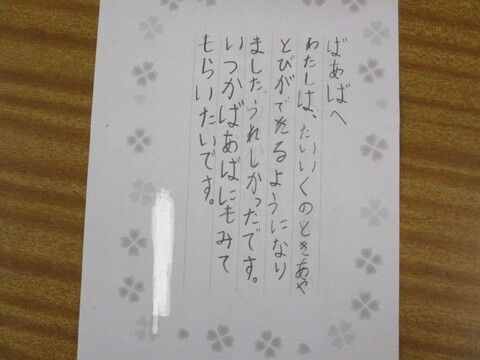 ばあばへ
わたしは、たいいくのときあや
とびができるようになり
ました。うれしかったです。
いつかばあばにもみて
もらいたいです。